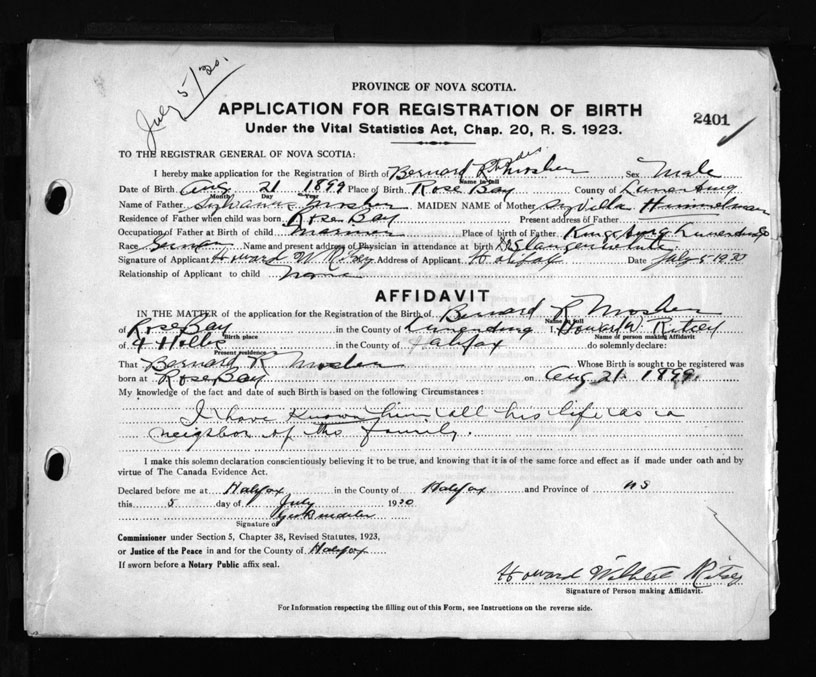 July 5/30.
PROVINCE OF NOVA SCOTIA.
APPLICATION FOR REGISTRATION OF BIRTH
2401
Under the Vital Statistics Act, Chap. 20, R. S. 1923.
TO THE REGISTRAR GENERAL OF NOVA SCOTIA:
I hereby make application for the Registration of Birth of Bernard Mosher Sex Male
Name in full
Date of Birth Aug 21 1899 Place of Birth Rose Bay County of Lunenburg
Month Day Year
Name of Father Mosher MAIDEN NAME of Mother Himmelman
Residence of Father when child was born Rose Bay Present address of Father
Occupation of Father at Birth of child mariner Place of birth of Father Lunenburg
Race German Name and present address of Physician in attendance at birth
Signature of Applicant Howard W Ritcey Address of Applicant Halifax Date July 5 1930
Relationship of Applicant to child None
AFFIDAVIT
IN THE MATTER of the application for the Registration of the Birth of Bernard R Mosher
Name in full
of Rose Bay in the County of Lunenburg I, Howard W. Ritcey
Birth place Name of person making Affidavit
of 4 Hollis in the County of Halifax do solemnly declare:
Present residence
That Bernard R Mosher Whose Birth is sought to be registered was
born at Rose Bay on Aug 21. 1899.
My knowledge of the fact and date of such Birth is based on the following Circumstances:
I have known him all his life as a
neighbor of the family.
I make this solemn declaration conscientiously believing it to be true, and knowing that it is of the same force and effect as if made under oath and by
virtue of The Canada Evidence Act.
Declared before me at Halifax in the County of Halifax and Province of NS
this 5 day of July 1930
Signature of
Commissioner under Section 5, Chapter 38, Revised Statutes, 1923,
or Justice of the Peace in and for the County of Halifax
If sworn before a Notary Public affix seal.
Howard Wilbert Ritcey
Signature of Person making Affidavit.
For Information respecting the filling out of this Form, see Instructions on the reverse side.